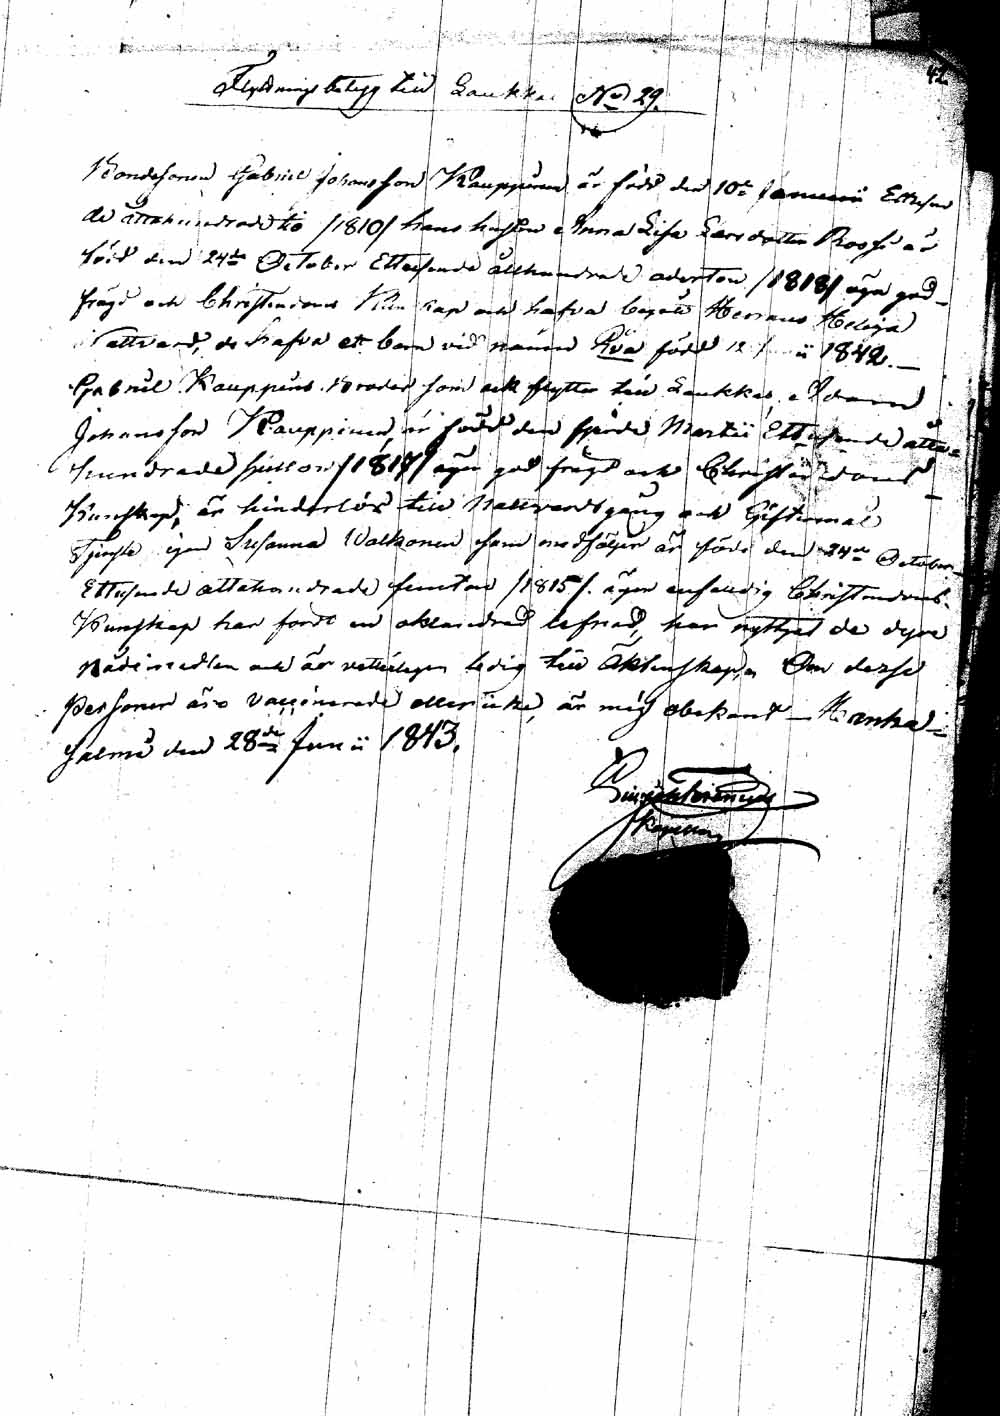 42
Flyttningsbetyg till Laukkas No 29.
Bondesonen Gabriel Johansson Kauppinen är född den 10de Januarii Ettusen
de åttahundrade tio /1810/ hans hustru Anna Lisa Larsdotter Rossi är
född den 24de October Ettusende åttahundrade aderton /1818/ äga god
frägd och Christendoms Kunskap och hafva begått Herrans Heliga
Nattvard, de hafva ett barn vid namn Eva född 12 1842. —
Gabriel Kauppins Broder som ock flytter till Laukkas, Adam
Johansson Kauppinen, är född den fjerde Martii Ettusende åtta=
hundrade sjutton /1817/ äger god frägd och Christendoms
Kunskap, är hinderlös till Nattvardsgång och Giftermål
Tjenste Susanna Walkonen som medföljer är född den 24de October
Ettusende åttahundrade femton /1815/. äger enfaldig Christendoms
Kunskap har fördt en oklandrad lefnad, har nyttjat de dyre
nådemedlen och är vetterligen ledig till Äktenskap, Om desse
personer äro vaccinerade eller icke, är mig obekant — Hanka=
salmi den 28de Junii 1843.
Kapellan